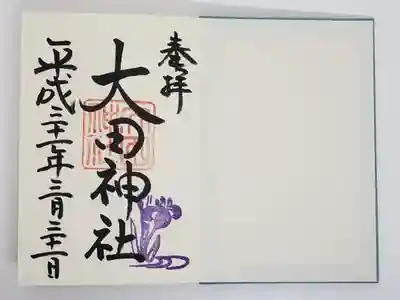 奉拝
大田神社
平成三十一年三月三十一日